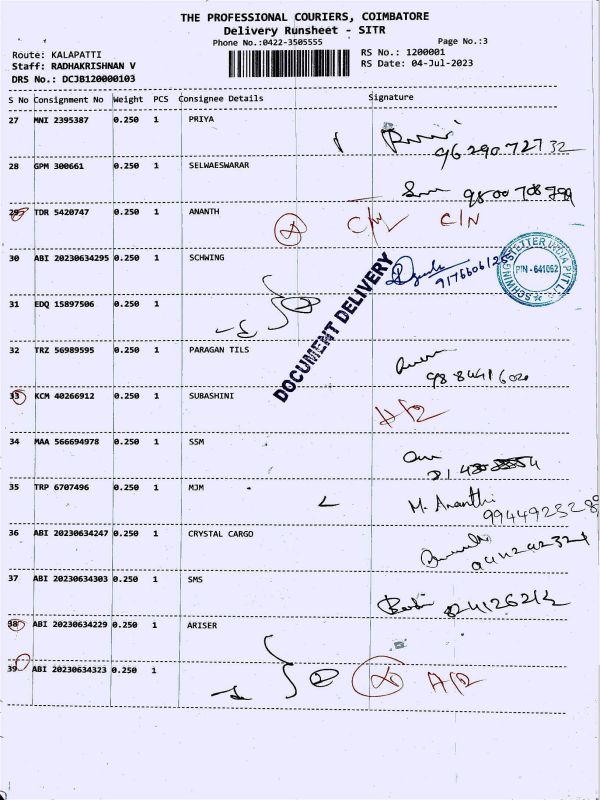 THE PROFESSIONAL COURIERS, COIMBATORE
Delivery Runsheet - SITR
Phone No.:0422-3505555 Page No.:3
Route: KALAPATTI RS No.: 1200001
Staff: RADHAKRISHNAN V RS Date: 04-Jul-2023
DRS No.: DCJB120000103
S No Consignment No Weight PCS Consignee Details Signature
27 MNI 2395387 0.250 1 PRIYA
9629072732
28 GPM 300661 0.250 1 SELWAESWARAR
29 TDR 5420747 0.250 1 ANANTH C/N
30 ABI 20230634295 0.250 1 SCHWING
SCHWING STETTER INDIA PVT LTD
PIN - 641062
DOCUMENT DELIVERY
31 EDQ 15897506 0.250 1
32 TRZ 56989595 0.250 1 PARAGAN TILS
33 KCM 40266912 0.250 1 SUBASHINI
34 MAA 566694978 0.250 1 SSM
35 TRP 6707496 0.250 1 MJM
M. Ananthi
36 ABI 20230634247 0.250 1 CRYSTAL CARGO
37 ABI 20230634303 0.250 1 SMS
38 ABI 20230634229 0.250 1 ARISER
39 ABI 20230634323 0.250 1